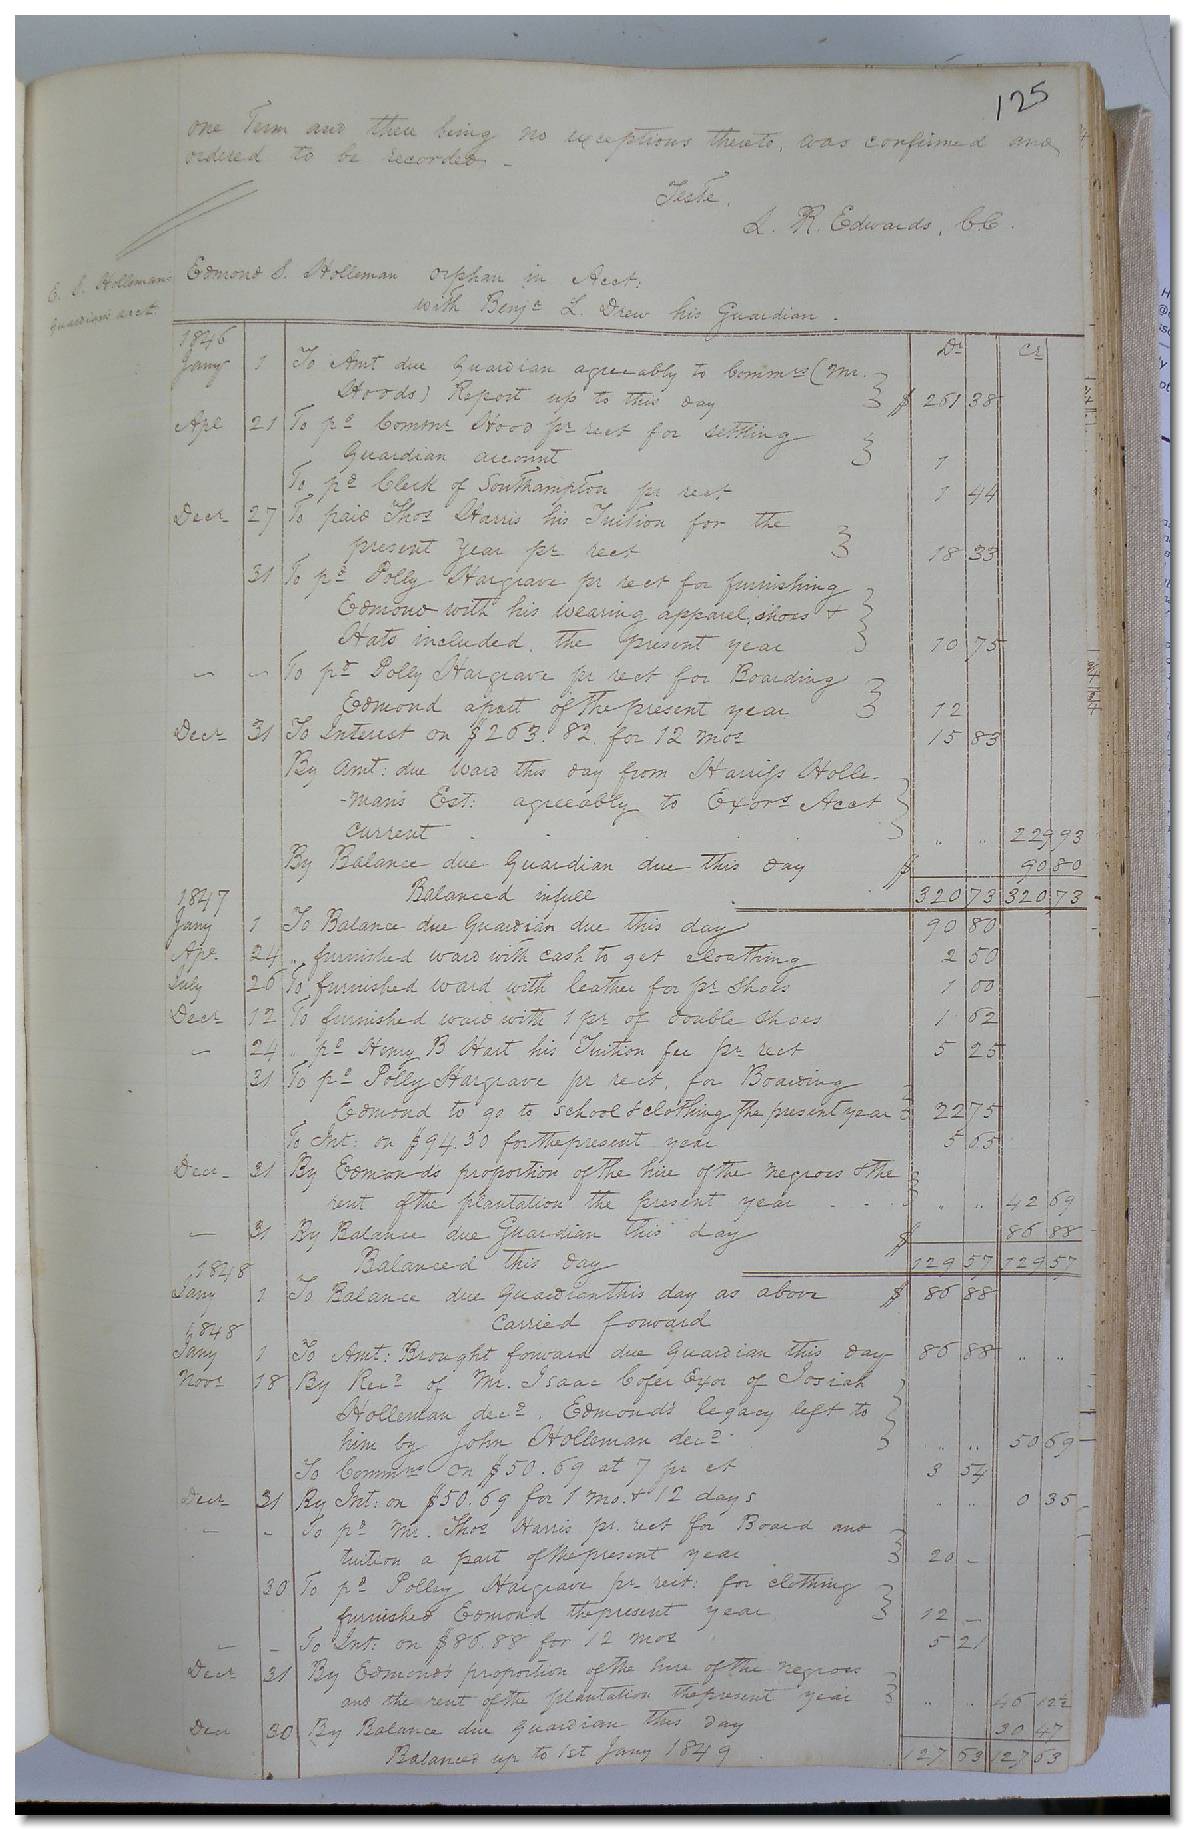 125
one Term and there being no exceptions thereto, was confirmed and
ordered to be recorded -
Teste.
L. R. Edwards, C.C.
E. S. Holleman
Guardians acct.
Edmond S. Holleman orphan in Acct:
with Benja L. Drew his Guardian.
Dr Cr
1846
Jany 1 To Amt due Guardian agreeably to Commrs (Mr.
Hoods) Report up to this day $ 261 38
Apl 21 To pd Commr Hood pr rect for settling
Guardian account 1
To pd Clerk of Southampton pr rect 1 44
Decr 27 To paid Thos Harris his Tuition for the
present year pr rect 18 33
31 To pd Polly Hargrave pr rect for furnishing
Edmond with his wearing apparel, shoes &
Hats included, the present year 10 75
" " To pd Polly Hargrave pr rect for Boarding
Edmond apart of the present year 12
Decr 31 To Interest on $263.82 for 12 mos 15 83
By Amt: due ward this day from Harriss Holle-
-man's Est: agreeably to Exors Acct
Current . . . " " 229 93
By Balance due Guardian due this day $ 90 80
Balanced in full 320 73 320 73
1847
Jany 1 To Balance due Guardian due this day 90 80
Apr. 24 " furnished ward with cash to get cloathing 2 50
July 26 To furnished ward with leather for pr shoes 1 00
Decr 12 To furnished ward with 1 pr of double shoes 1 62
" 24 " pd Henry B Hart his Tuition fee pr rect 5 25
31 To pd Polly Hargrave pr rect. for Boarding
Edmond to go to school & clothing the present year 22 75
To Int: on $94.30 for the present year 5 65
Decr 31 By Edmonds proportion of the hire of the negroes & the
rent of the plantation the present year . . . " " 42 69
" 31 By Balance due Guardian this day $ 86 88
Balanced this day 129 57 129 57
1848
Jany 1 To Balance due Guardian this day as above $ 86 88
Carried forward
1848
Jany 1 To Amt: Brought forward due Guardian this day 86 88 " "
Novr 18 By Recd of Mr. Isaac Cofer Exor of Josiah
Holleman decd. Edmonds legacy left to
him by John Holleman decd. " " 50 69
To Commrs on $50.69 at 7 pr ct 3 54
Decr 31 By Int: on $50.69 for 1 mo. & 12 days " " 0 35
" - To pd Mr. Thos Harris pr. rect for Board and
tuition a part of the present year 20 -
30 To pd Polley Hargrave pr rect: for clothing
furnished Edmond the present year 12 -
- - To Int: on $86.88 for 12 mos 5 21
Decr 31 By Edmond's proportion of the hire of the negroes
and the rent of the plantation the present year " " 46 12½
Decr 30 By Balance due Guardian this day 30 47
Balanced up to 1st Jany 1849 127 63 127 63